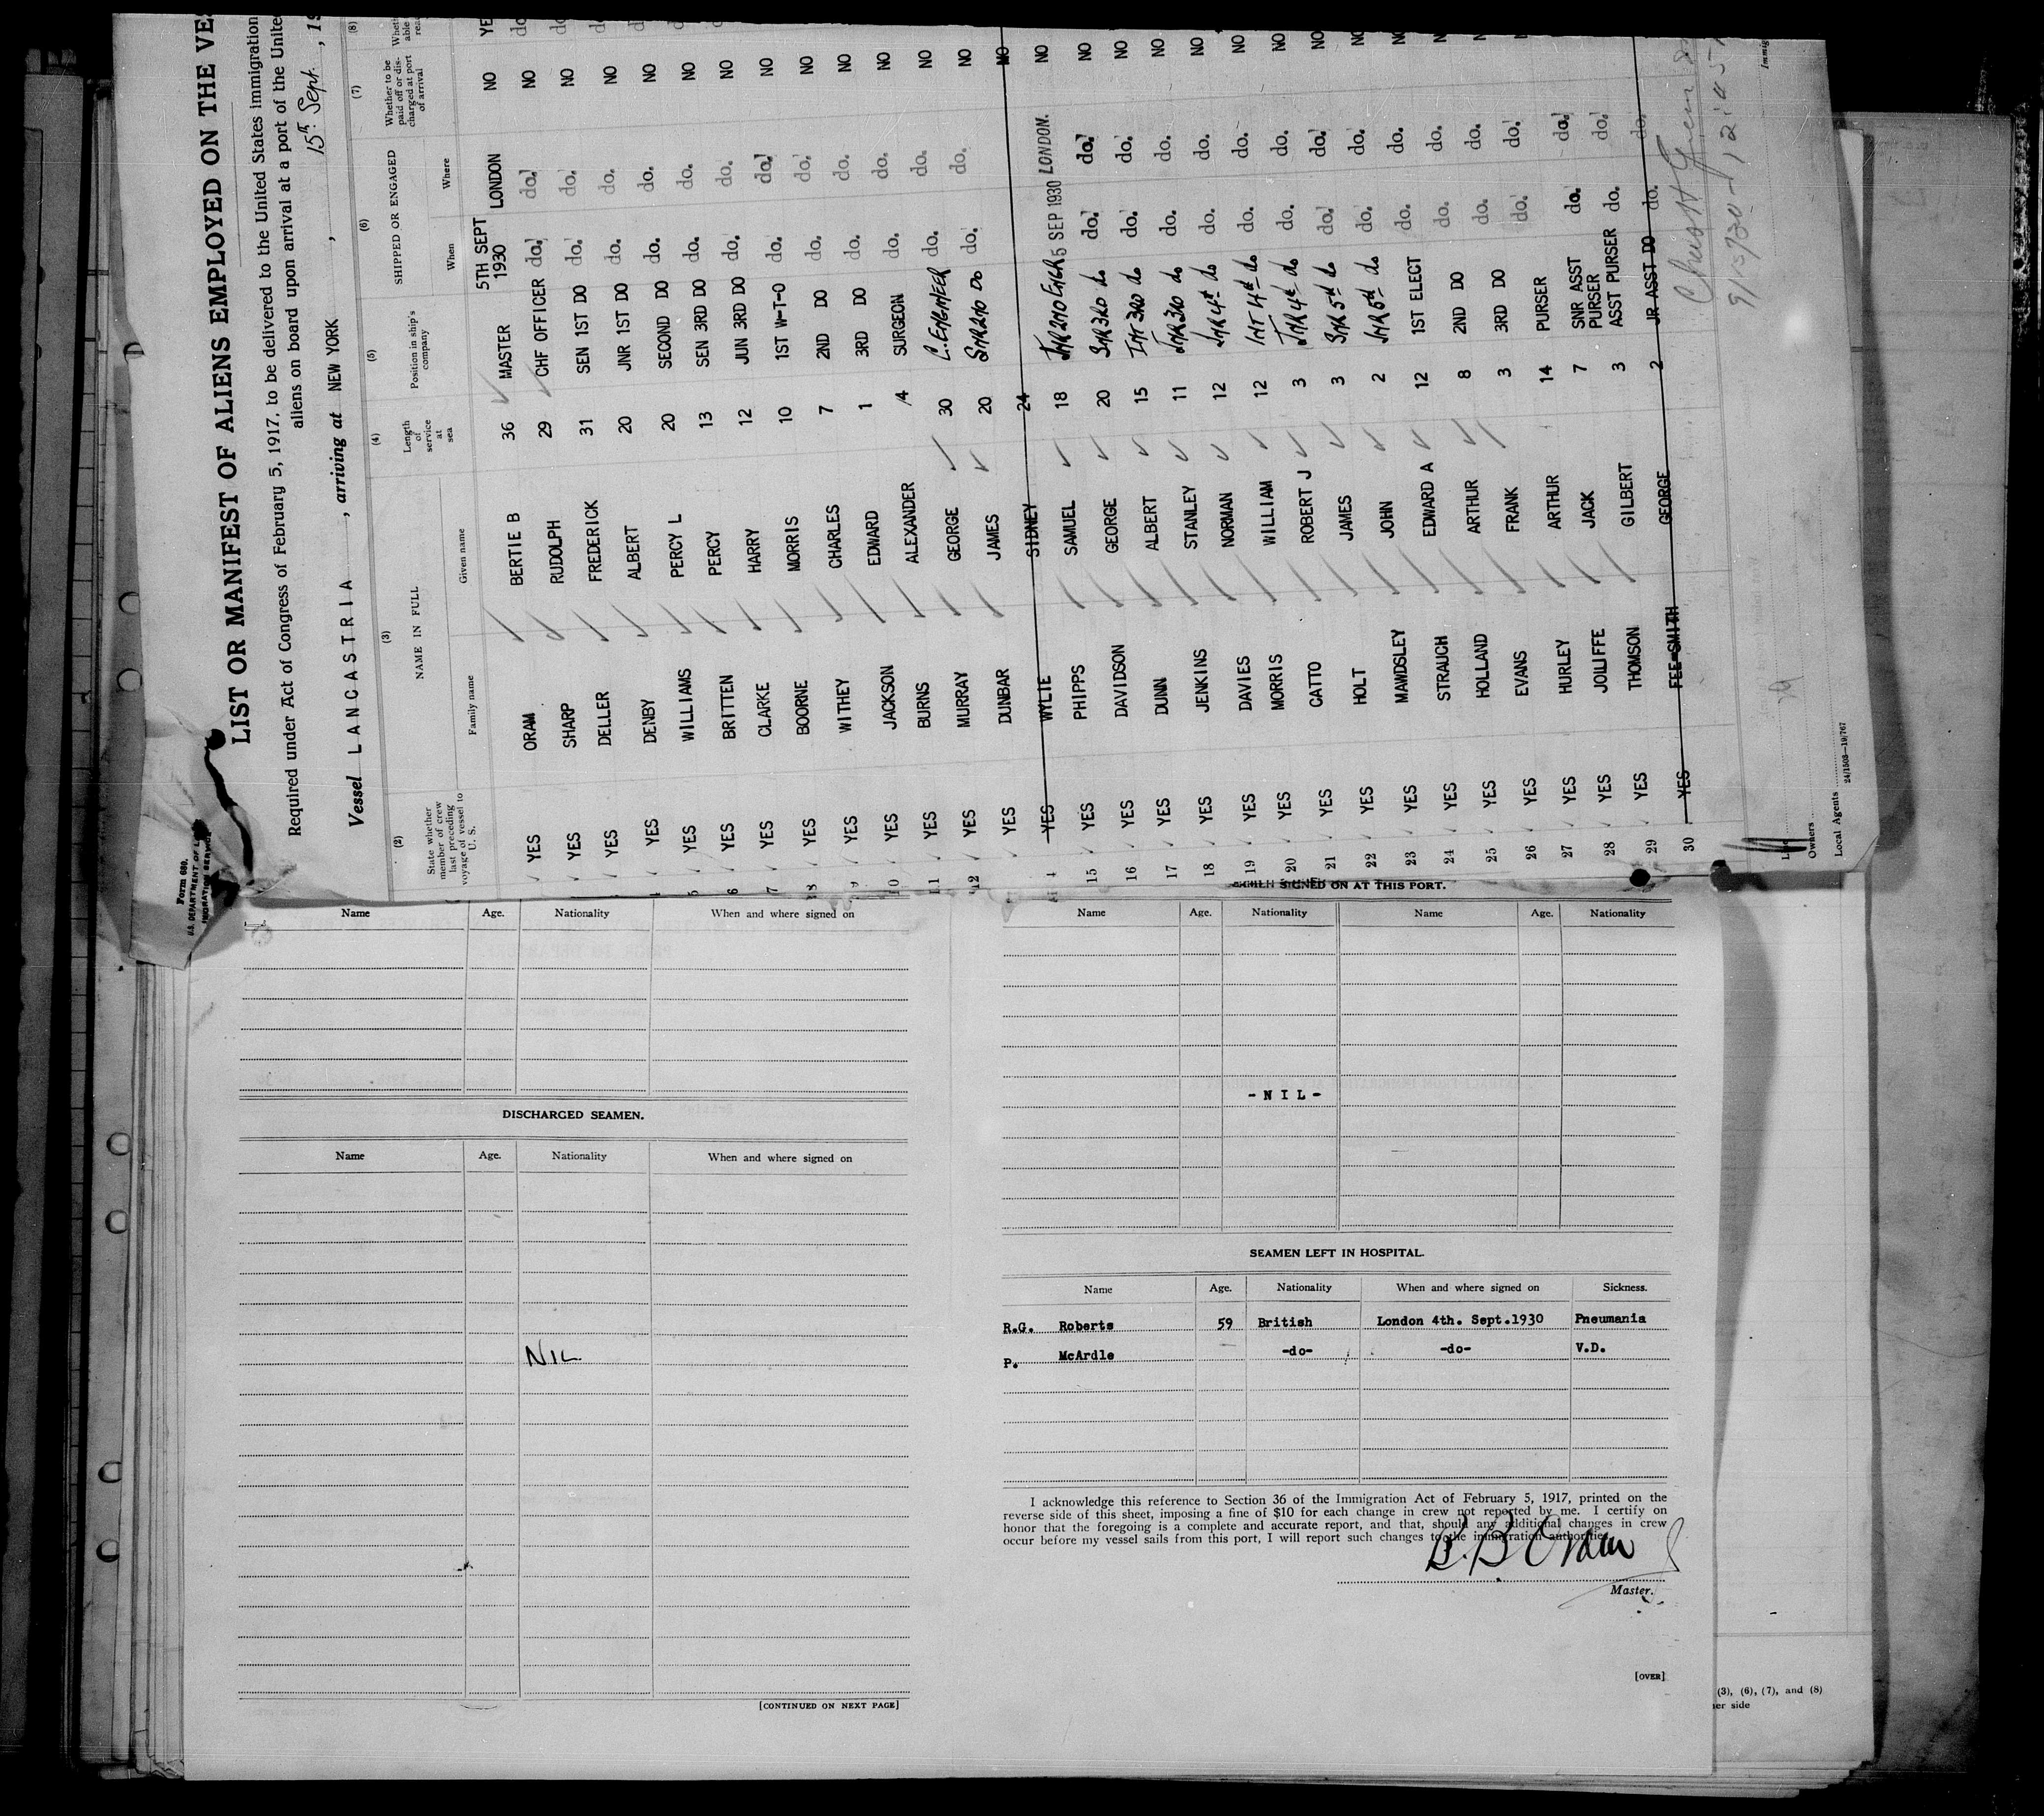 LIST OR MANIFEST OF ALIENS EMPLOYED ON THE VES
Required under Act of Congress of February 5, 1917, to be delivered to the United States immigration
aliens on board upon arrival at a port of the United
Vessel LANCASTRIA, arriving at NEW YORK, 15th Sept., 19
Form 680,
U.S. DEPARTMENT OF L
(2) (3) (4) (5) (6) (7) (8)
State whether member of crew last preceding voyage of vessel to U. S. NAME IN FULL Length of service at sea Position in ship's company SHIPPED OR ENGAGED Whether to be paid off or discharged at port of arrival
Family name Given name When Where
YES ORAM BERTIE B 36 MASTER 5TH SEPT 1930 LONDON NO YE
YES SHARP RUDOLPH 29 CHF OFFICER do. do. NO do
YES DELLER FREDERICK 31 SEN 1ST DO do. do. NO do
4 YES DENBY ALBERT 20 JNR 1ST DO do. do. NO
5 YES WILLIAMS PERCY L 20 SECOND DO do. do. NO
6 YES BRITTEN PERCY 13 SEN 3RD DO do. do. NO
7 YES CLARKE HARRY 12 JUN 3RD DO do. do. NO
8 YES BOORNE MORRIS 10 1ST W-T-O do. do. NO
9 YES WITHEY CHARLES 7 2ND DO do. do. NO
10 YES JACKSON EDWARD 1 3RD DO do. do. NO
11 YES BURNS ALEXANDER 4 SURGEON do. do. NO
12 YES MURRAY GEORGE 30 C. ENGINEER do. do. NO
YES DUNBAR JAMES 20 SNR 2ND DO do. do. NO
14 YES WYLIE SIDNEY 24 NO
15 YES PHIPPS SAMUEL 18 JNR 2ND ENGR 5 SEP 1930 LONDON. NO
16 YES DAVIDSON GEORGE 20 SNR 3RD do do. do. NO
17 YES DUNN ALBERT 15 INT 3RD do do. do. NO
18 YES JENKINS STANLEY 11 JNR 3RD do do. do. NO
19 YES DAVIES NORMAN 12 SNR 4th do do. do. NO
20 YES MORRIS WILLIAM 12 INT 4th do do. do. NO
21 YES CATTO ROBERT J 3 JNR 4th do do. do. NO
22 YES HOLT JAMES 3 SNR 5th do do. do. NO
23 YES MAWDSLEY JOHN 2 JNR 5th do do. do. NO
24 YES STRAUCH EDWARD A 12 1ST ELECT do. do.
25 YES HOLLAND ARTHUR 8 2ND DO do. do.
26 YES EVANS FRANK 3 3RD DO do. do.
27 YES HURLEY ARTHUR 14 PURSER do. do.
28 YES JOLIFFE JACK 7 SNR ASST PURSER do. do.
29 YES THOMSON GILBERT 3 ASST PURSER do. do.
30 YES FEE-SMITH GEORGE 2 JR ASST DO do. do.
Line
Owners
Local Agents
24/1503—19/767
Immig
SIGNED ON AT THIS PORT.
Name Age. Nationality When and where signed on
Name Age. Nationality Name Age. Nationality
- N I L -
DISCHARGED SEAMEN.
Name Age. Nationality When and where signed on
NIL
[CONTINUED ON NEXT PAGE]
SEAMEN LEFT IN HOSPITAL.
Name Age. Nationality When and where signed on Sickness.
R.G. Roberts 59 British London 4th. Sept.1930 Pneumania
P. McArdle -do- -do- V.D.
I acknowledge this reference to Section 36 of the Immigration Act of February 5, 1917, printed on the
reverse side of this sheet, imposing a fine of $10 for each change in crew not reported by me. I certify on
honor that the foregoing is a complete and accurate report, and that, should any additional changes in crew
occur before my vessel sails from this port, I will report such changes to the immigration authorities.
B. B Oram
Master.
[OVER]
(3), (6), (7), and (8)
er side